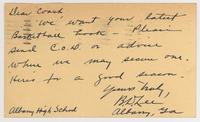 Dear Coach
We want your latest
Basketball book - Please
send C.O.D. or advise
where we may secure one.
Here's for a good season
Yours truly,
B.D. Lee
Albany High School
Albany, Ga